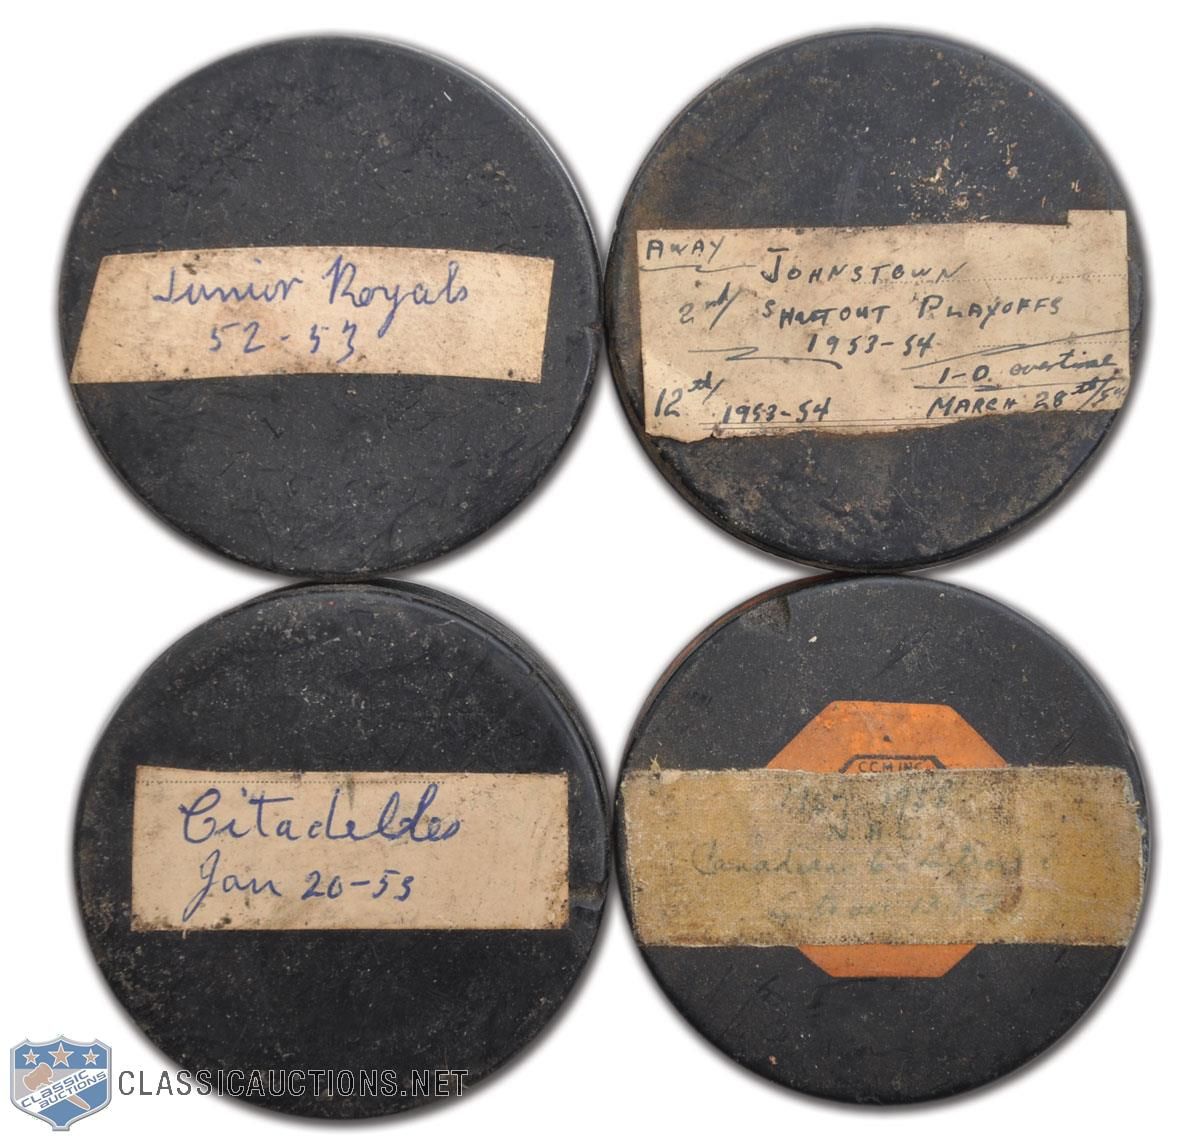 Junior Royals
52-53
AWAY JOHNSTOWN
2nd SHUTOUT PLAYOFFS
1953-54
1-0 overtime
12th 1953-54 MARCH 28th/54
Citadelles
Jan 20-53
C.C.M INC.
1958
Canadien 6
CLASSIC AUCTIONS
CLASSICAUCTIONS.NET